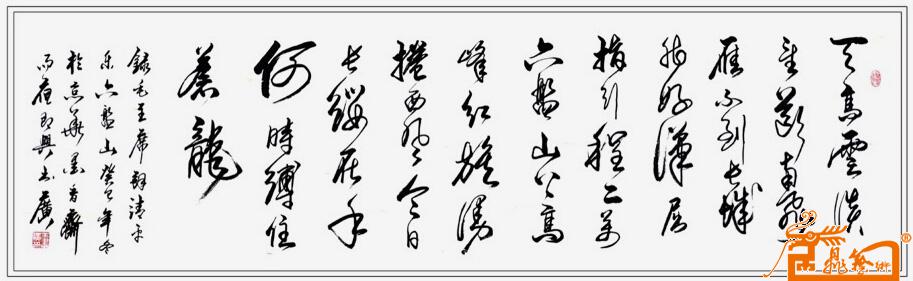 天高雲淡
望斷南飛
雁不到長城
非好漢屈
指行程二萬
六盤山上高
峰紅旗漫
捲西風今日
長纓在手
何時縛住
蒼龍
錄毛主席辭清平
樂六盤山癸巳年
於京華墨香齋
雨夜即興書